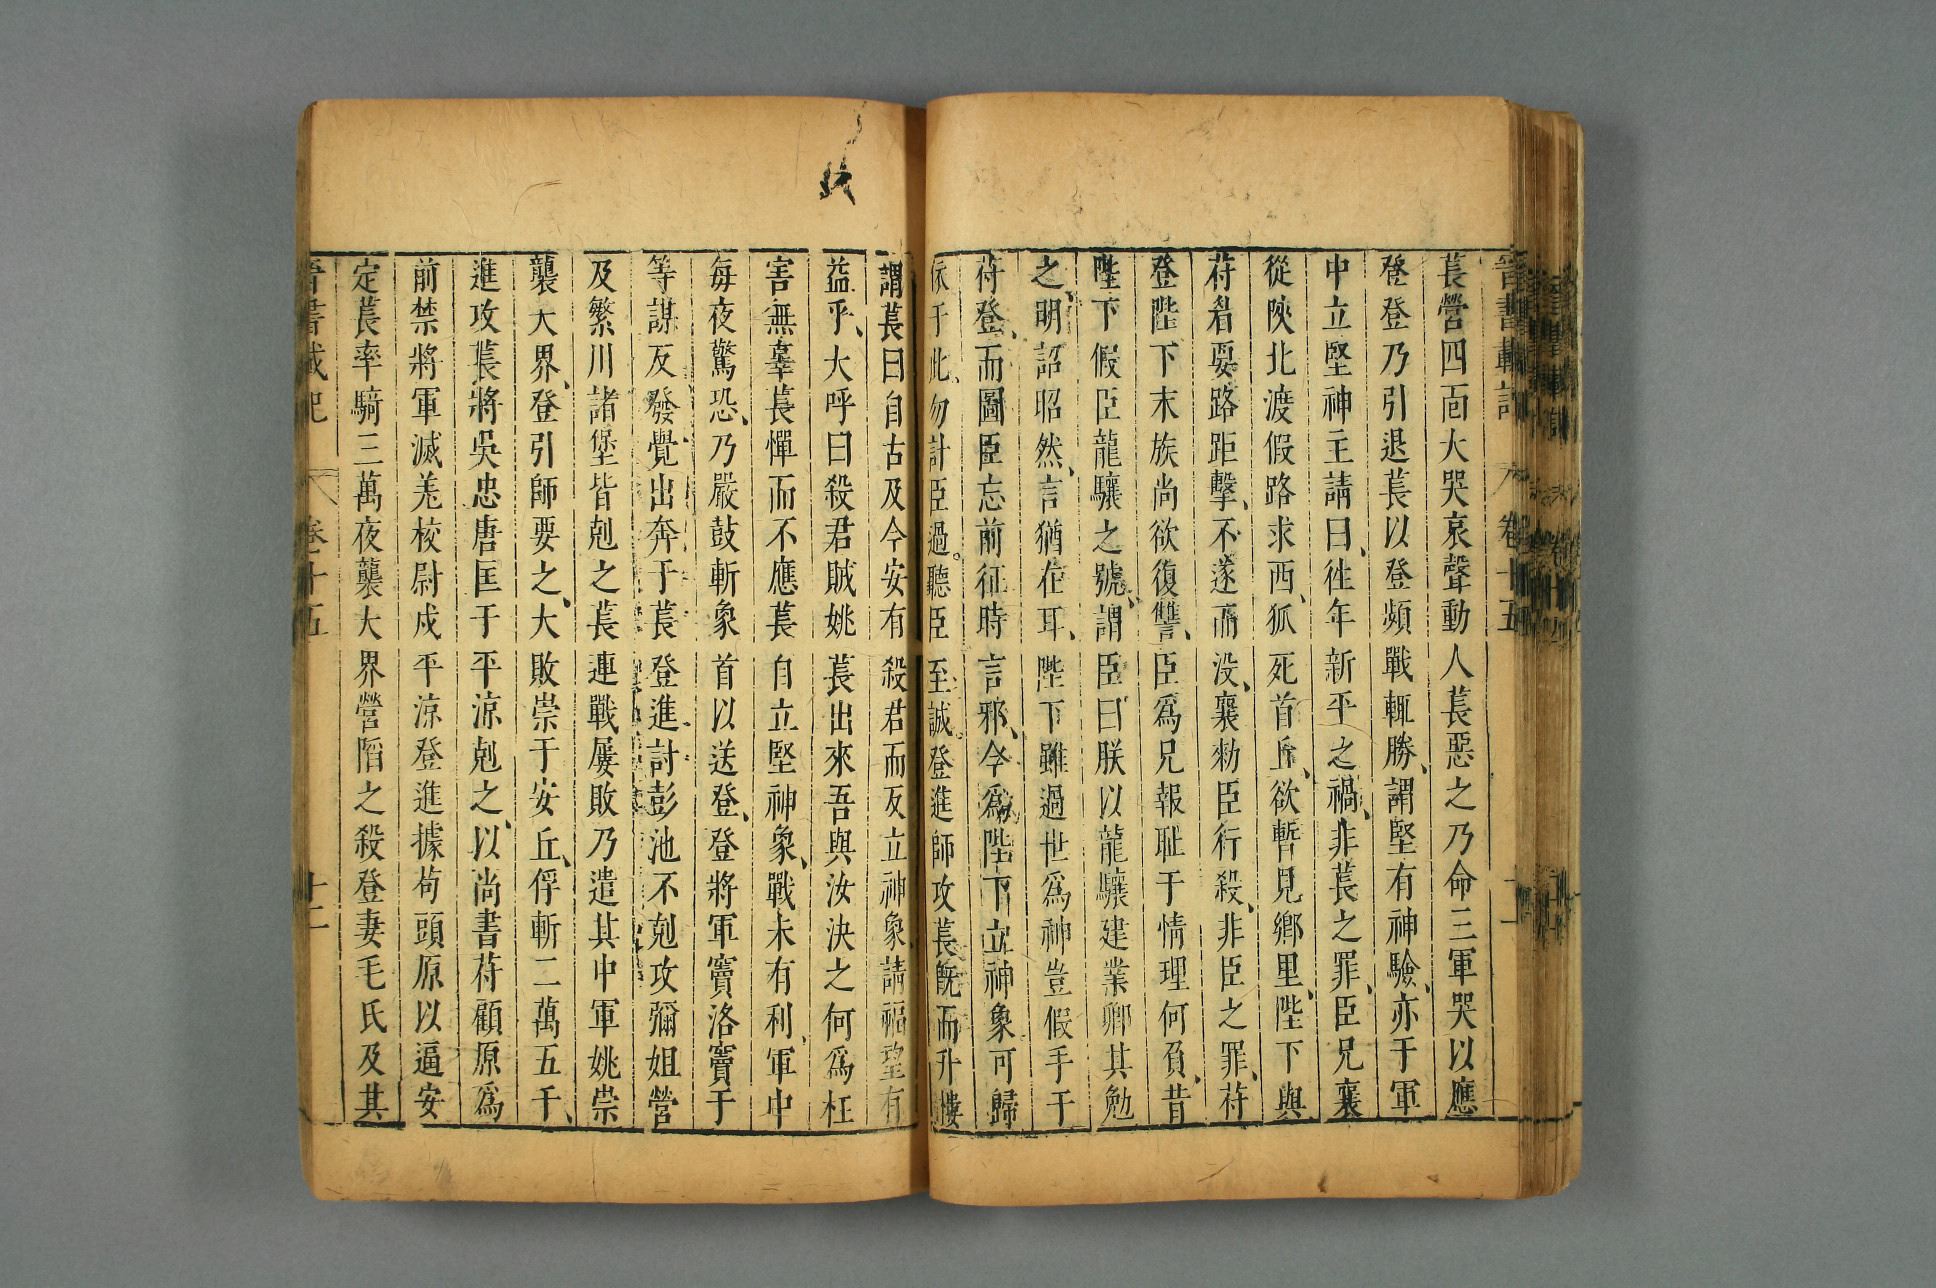 晉書載記 卷十五 十一
萇營四面大哭哀聲動人萇惡之乃命三軍哭以應
登登乃引退萇以登頻戰輒勝謂堅有神驗亦于軍
中立堅神主請曰往年新平之禍非萇之罪臣兄襄
從陝北渡假路求西狐死首丘欲暫見鄉里陛下與
苻眉要路距擊不遂而没襄勑臣行殺非臣之罪苻
登陛下末族尚欲復讐臣爲兄報耻于情理何負昔
陛下假臣龍驤之號謂臣曰朕以龍驤建業卿其勉
之明詔昭然言猶在耳陛下雖過世爲神豈假手于
苻登而圖臣忘前征時言邪今爲陛下立神象可歸
依于此勿計臣過聽臣至誠登進師攻萇旣而升樓
謂萇曰自古及今安有殺君而反立神象請福望有
益乎大呼曰殺君賊姚萇出來吾與汝決之何爲枉
害無辜萇憚而不應萇自立堅神象戰未有利軍中
每夜驚恐乃嚴鼓斬象首以送登登將軍竇洛竇于
等謀反發覺出奔于萇登進討彭池不剋攻彌姐營
及繁川諸堡皆剋之萇連戰屢敗乃遣其中軍姚崇
襲大界登引師要之大敗崇于安丘俘斬二萬五千
進攻萇將吳忠唐匡于平涼剋之以尚書苻顧原爲
前禁將軍滅羌校尉戍平涼登進據茍頭原以逼安
定萇率騎三萬夜襲大界營陷之殺登妻毛氏及其
晉書載記 卷十五 十一